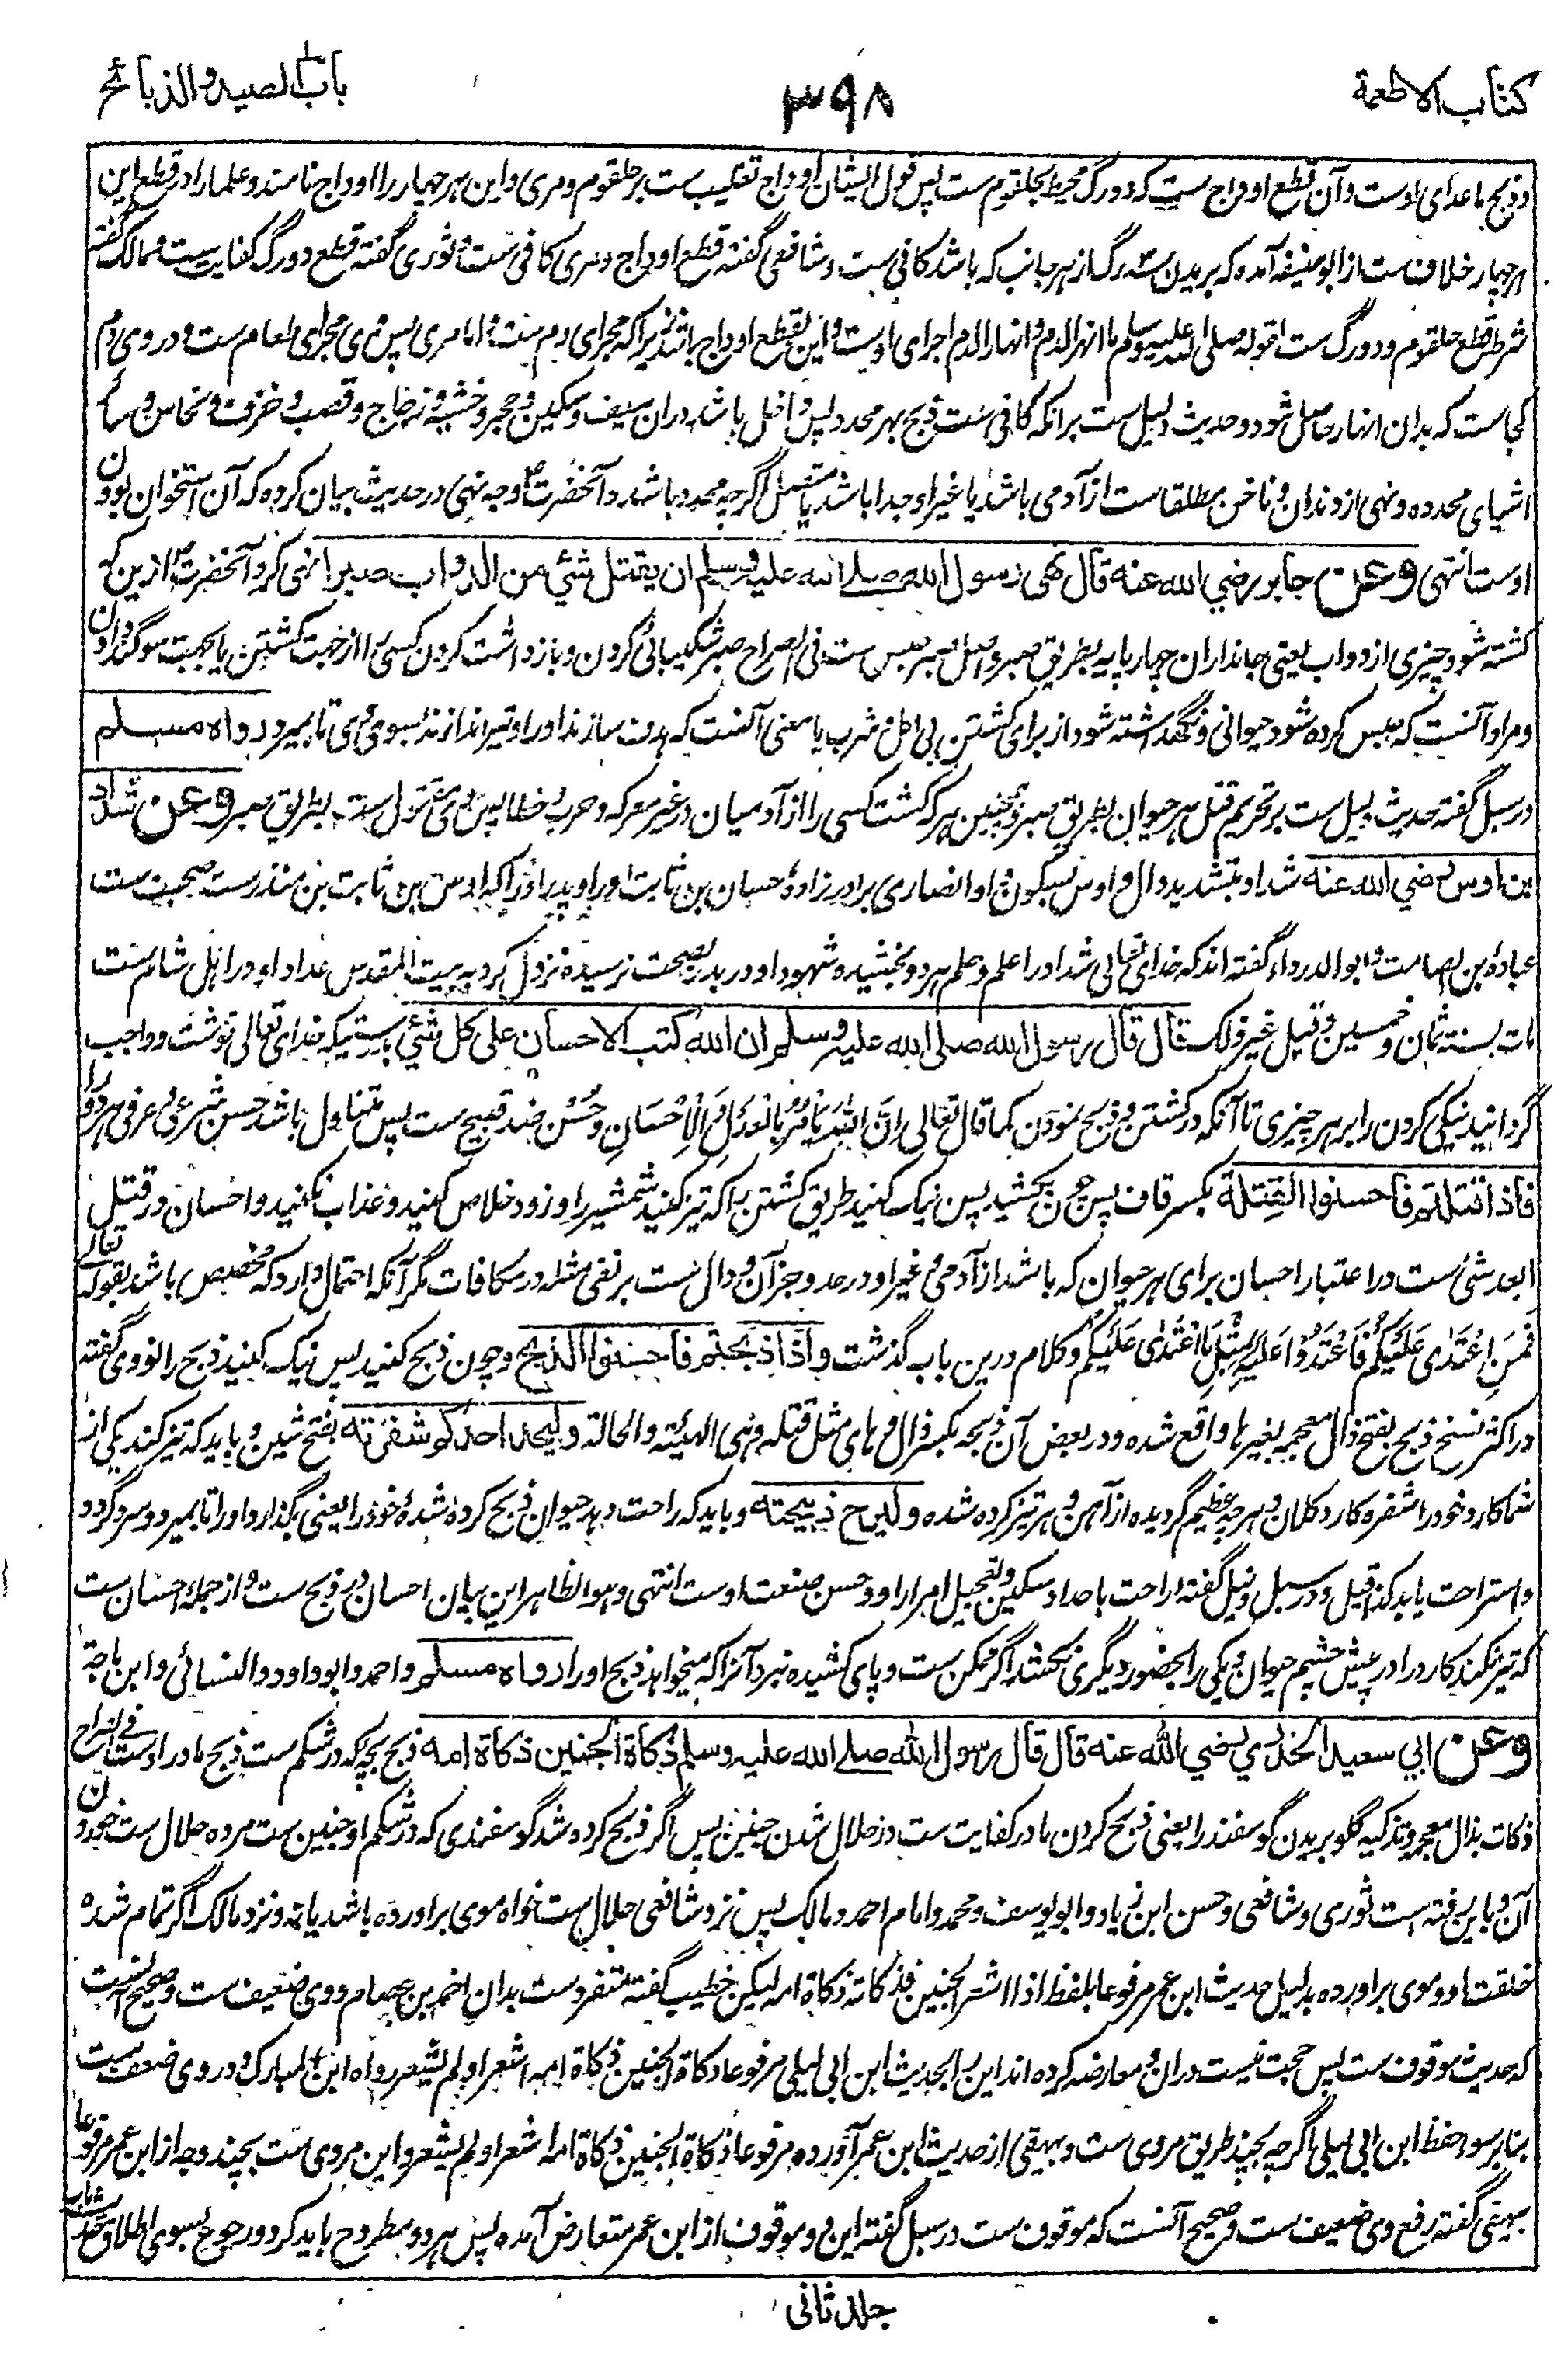 کتاب الاطعمة
۳۹۸
باب الصید والذبائح
و ذبح ماعدای اوست و آن قطع اوداج ست که دو رگ محیط بحلقوم ست پس قول ایشان اوداج تغلیب ست بر حلقوم و مری و این هر چهار را اوداج نامند و علما را در قطع این
هر چهار خلاف ست از ابوحنیفه آمده که بریدن سه رگ از هر جانب که باشد کافی ست و شافعی گفته قطع اوداج و مری کافی ست و ثوری گفته قطع دو رگ کفایت ست و مالک گفته
شرط قطع حلقوم و دو رگ ست لقوله صلی الله علیه وسلم ما انهر الدم و انهار الدم اجرای اوست و این بقطع اوداج باشد زیراکه مجرای دم ست و اما مری پس وی مجرای طعام ست و در وی دم
کجاست که بدان انهار حاصل شود و حدیث دلیل ست برانکه کافی ست ذبح بهر محدد پس داخل باشد دران سیف و سکین و حجر و خشب و زجاج و قصب و خزف و نحاس و سائر
اشیای محدده و نهی از دندان و ناخن مطلقا ست از آدمی باشد یا غیر او جدا باشد یا متصل اگرچه محدد باشد و آنحضرت وجه نهی در حدیث بیان کرده که آن استخوان بودن
اوست انتهی وعن جابر رضي الله عنه قال نهى رسول الله صلى الله عليه وسلم ان يقتل شئي من الدواب صبرا نهی کرد آنحضرت ازین که
کشته شود چیزی از دواب یعنی جانداران چهارپایه بطریق صبر و اصل صبر حبس ست فی الصراح صبر شکیبائی کردن و بازداشت کردن کسی را از جهت کشتن یا بجهت سوگند دادن
و مراد آنست که حبس کرده شود حیوانی و نگهداشته شود از برای کشتن بی اکل و شرب یا معنی آنست که هدف سازند او را و تیر اندازند بسوی وی تا بمیرد رواه مسلم
در سبل گفته حدیث دلیل ست بر تحریم قتل هر حیوان بطریق صبر و همچنین هر که کشت کسی را از آدمیان در غیر معرکه و حرب و خطا پس وی مقتول ست بطریق صبر وعن شداد
بن اوس رضي الله عنه شداد بتشدید دال و اوس بسکون واو انصاری برادرزادهٔ حسان بن ثابت و او را و پدر او را که اوس بن ثابت بن منذر ست صحبت ست
عبادهٔ بن الصامت و ابوالدرداء گفته اند که خدای تعالی شداد را علم و حلم هر دو بخشیده شهود او در بدر بصحت نرسیده نزول کرد به بیت المقدس عداد او در اهل شام ست
مات بسنة ثمان و خمسین و قیل غیر ذلک قال قال رسول الله صلى الله عليه وسلم ان الله كتب الاحسان على كل شئي بدرستیکه خدای تعالی نوشت و واجب
گردانید نیکی کردن را بر هر چیزی تا آنکه در کشتن و ذبح نمودن کما قال تعالی إِنَّ اللَّهَ يَأْمُرُ بِالْعَدْلِ وَالْإِحْسَانِ و حُسْن ضد قبیح ست پس متناول باشد حسن شرعی و عرفی هر دو را
فاذا قتلتم فاحسنوا القِتلة بکسر قاف پس چون بکشید پس نیک کنید طریق کشتن را که تیز کنید شمشیر را و زود خلاص کنید و عذاب نکنید و احسان در قتل
ابعد شئ ست در اعتبار احسان برای هر حیوان که باشد از آدمی و غیر او در حد و جز آن و دال ست بر نفی مثله در مکافات مگر آنکه احتمال دارد که مخصص باشد بقوله تعالی
فَمَنِ اعْتَدَىٰ عَلَيْكُمْ فَاعْتَدُوا عَلَيْهِ بِمِثْلِ مَا اعْتَدَىٰ عَلَيْكُمْ و کلام درین باب گذشت واذا ذبحتم فاحسنوا الذبح و چون ذبح کنید پس نیک کنید ذبح را نووی گفته
در اکثر نسخ ذبح بفتح ذال معجمه بغیر ها واقع شده و در بعض آن ذبحه بکسر ذال و های مثل قتله و هی الهیئته والحالة وليحد احدكم شفرته بفتح شین و باید که تیز کند یکی از
شما کارد خود را شفره کارد کلان و هر چه عظیم گردیده از آهن و هر تیز کرده شده وليرح ذبيحته و باید که راحت دهد حیوان ذبح کرده شدهٔ خود را یعنی بگذارد او را تا بمیرد و سرد گردد
و استراحت یابد کذا قیل و در سبل و نیل گفته اراحت باحداد سکین و تعجیل امرار او و حسن صنعت اوست انتهی و هو الظاهر این بیان احسان در ذبح ست و از جمله احسان ست
که تیز نکند کارد را در پیش چشم حیوان و یکی را بحضور دیگری نکشد اگر ممکن ست و پای کشیده نبرد آنرا که میخواهد ذبح او را رواه مسلم و احمد و ابوداود و النسائی و ابن ماجة
وعن ابي سعيد الخدري رضي الله عنه قال قال رسول الله صلى الله عليه وسلم ذكاة الجنين ذكاة امه ذبح بچه که در شکم ست ذبح مادر اوست فی الصراح
ذکات بذال معجمه و تذکیه گلو بریدن گوسفند را یعنی ذبح کردن مادر کفایت ست در حلال شدن جنین پس اگر ذبح کرده شد گوسفندی که در شکم او جنین ست مرده حلال ست خوردن
آن و باین رفته است ثوری و شافعی و حسن ابن زیاد و ابویوسف و محمد و امام احمد و مالک پس نزد شافعی حلال ست خواه موی براورده باشد یا نه و نزد مالک اگر تمام شده
خلقت او و موی براورده بدلیل حدیث ابن عمر مرفوعا بلفظ اذا اشعر الجنین فذکاته ذکاة امه لیکن خطیب گفته متفرد ست بدان احمد بن عصام و وی ضعیف ست و صحیح آنست
که حدیث موقوف ست پس حجت نیست دران و معارضه کرده اند این را بحدیث ابن ابی لیلی مرفوعا ذکاة الجنین ذکاة امه اشعر او لم یشعر رواه ابن المبارک و در وی ضعف ست
بنا بر سوء حفظ ابن ابی لیلی اگرچه بچند طریق مروی ست و بیهقی از حدیث ابن عمر آورده مرفوعا ذکاة الجنین ذکاة امه اشعر او لم یشعر و این مروی ست بچند وجه از ابن عمر مرفوعا
بیهقی گفته رفع وی ضعیف ست و صحیح آنست که موقوف ست در سبل گفته این و موقوف از ابن عمر متعارض آمده پس هر دو مطروح باید کرد و رجوع بسوی اطلاق حدیث باب
جلد ثانی